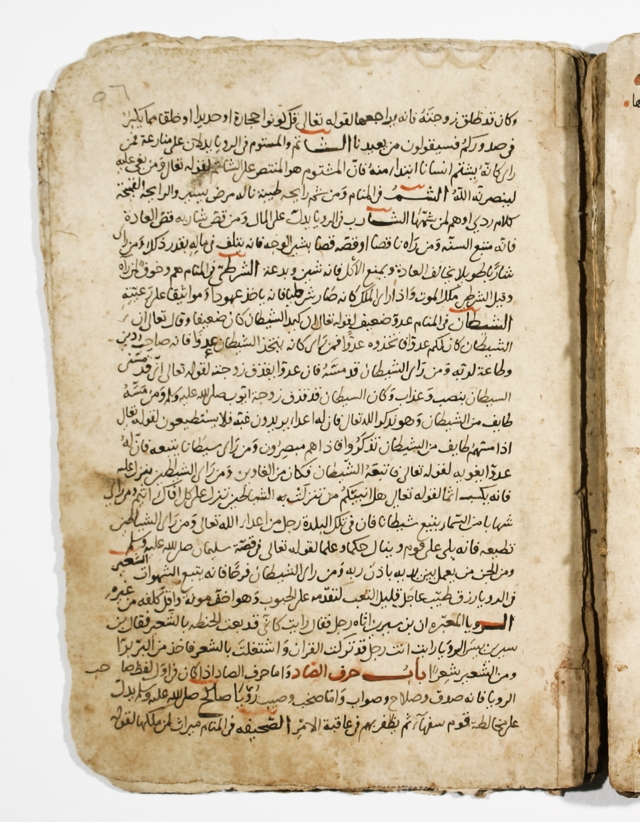 وكان قد طلق زوجته فانه يراجعها لقوله تعالى قل كونوا حجارة او حديدا او خلقا مما يكبر
في صدوركم فسيقولون من يعيدنا الشاتم والمشتوم في الرويا يدلان على منازعة فمن
راى كانه يشتم انسانا ابتداء منه فان المشتوم هو المنتصر على الشاتم لقوله تعالى ومن بغى عليه
لينصرنه الله الشم في المنام ومن شم رايحة طيبة ناله مرض يسير والرايحة القبيحة
كلام ردي او هم لمن شمها الشارب في الرويا يدل على المال ومن قص شاربه قص العادة
فانه متبع السنه ومن راه ناقصا او قصه قصا يشين الوجه فانه يتلف من ماله بقدر ذلك ومن راى
شاربا طويلا يخالف العادة ويمنع الاكل فانه شين وبدعة الشرطي في المنام هم وخوف لمن راه
وقيل الشرطي ملك الموت واذا راى الملك كانه صار شرطيا فانه ياخذ عهودا ومواثيقا على رعيته
الشيطان في المنام عدو ضعيف لقوله تعالى ان كيد الشيطان كان ضعيفا وقال تعالى ان
الشيطان كان لكم عدو فاتخذوه عدوا فمن راى كانه يتخذ الشيطان عدوا فانه صاحب دين
وطاعة لربه ومن راى الشيطان قد مسه فان عدوا يقذف زوجته لقوله تعالى اني قد مسني
الشيطان بنصب وعذاب وكان الشيطان قد قذف زوجة ايوب صلى الله عليه وسلم ومن مسه
طايف من الشيطان وهو يذكر الله تعالى فان له اعداء يريدون غيه فلا يستطيعون لقوله تعالى
اذا مسهم طايف من الشيطان تذكروا فاذا هم مبصرون ومن راى شيطانا يتبعه فان له
عدوا يغويه لقوله تعالى فاتبعه الشيطان فكان من الغاوين ومن راى الشياطين تنزل عليه
فانه يكسب اثما لقوله تعالى هل انبيكم على من تنزل به الشياطين تنزل على كل افاك اثيم ومن راى
شهابا من السماء يتبع شيطانا فان في تلك البلدة رجل من اعداء الله تعالى ومن راى الشياطين
تطيعه فانه يلي على قوم وينال حكما وعلما لقوله تعالى في قصة سليمان صلى الله عليه وسلم
ومن الجن من يعمل بين يديه باذن ربه ومن راى الشيطان فرحا فانه يتبع الشهوات الشعير
في الرويا رزق طيب عاجل قليل التعب لتقدمه على الحبوب وهو اخف مونة واقل كلفه من غيره
الرويا المعبره ان بن سيرين اتاه رجل فقال رايت كاني قد بعت الحنطه بالشعير فقال بن
سيرين بيس الرويا رايت انت رجل قد تركت القران واشتغلت بالشعر فاخذ من البر برا
ومن الشعير شعرا باب حرف الصاد واما حرف الصاد اذا كان في اول لفظ صاحب
الرويا فانه صدق وصلاح وصواب واما صخب وصيب رويا صالح صلى الله عليه وسلم يدل
على مخالطة قوم سفهاء ثم يظفر بهم في عاقبة الامر الصحيفه في المنام ميراث لمن ملكها لقوله